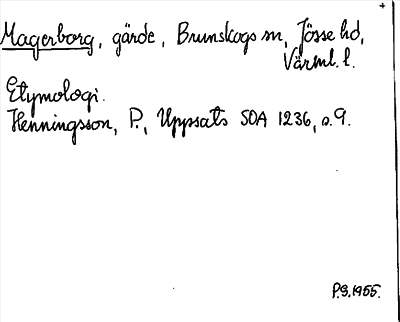 Magerborg, gärde, Brunskogs sn, Jösse hd,
Värml. l.
Etymologi.
Henningsson, P., Uppsats SOA 1236, s. 9.
P.G. 1955.